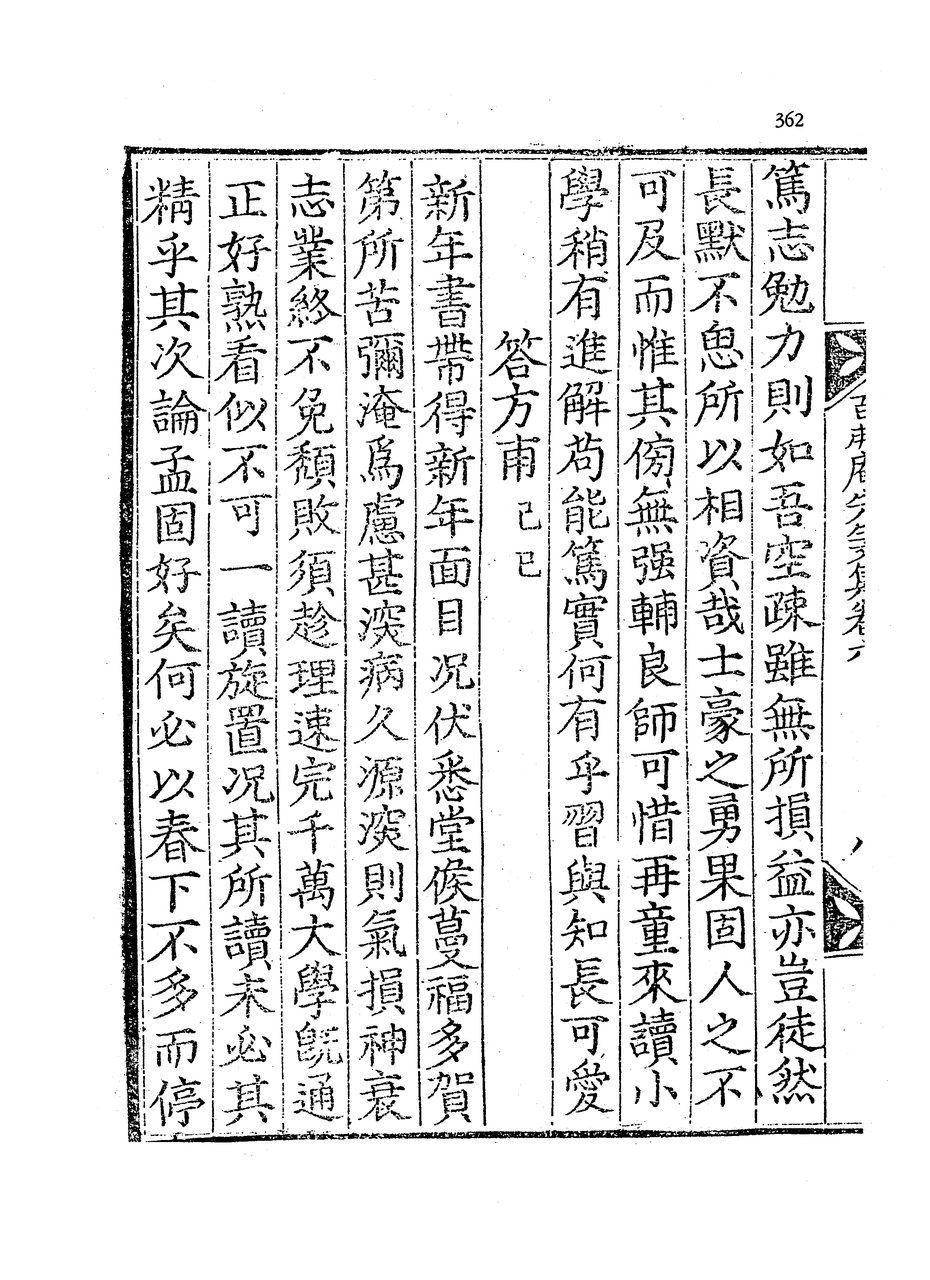 362
篤志勉力則如吾空疎雖無所損益亦豈徒然
長默不思所以相資哉士豪之勇果固人之不
可及而惟其傍無强輔良師可惜再童來讀小
學稍有進解苟能篤實何有乎習與知長可愛
答方甫 己巳
新年書帶得新年面目况伏悉堂候蔓福多賀
第所苦彌淹爲慮甚深病久源深則氣損神衰
志業終不免頹敗須趁理速完千萬大學旣通
正好熟看似不可一讀旋置况其所讀未必其
精乎其次論孟固好矣何必以春下不多而停